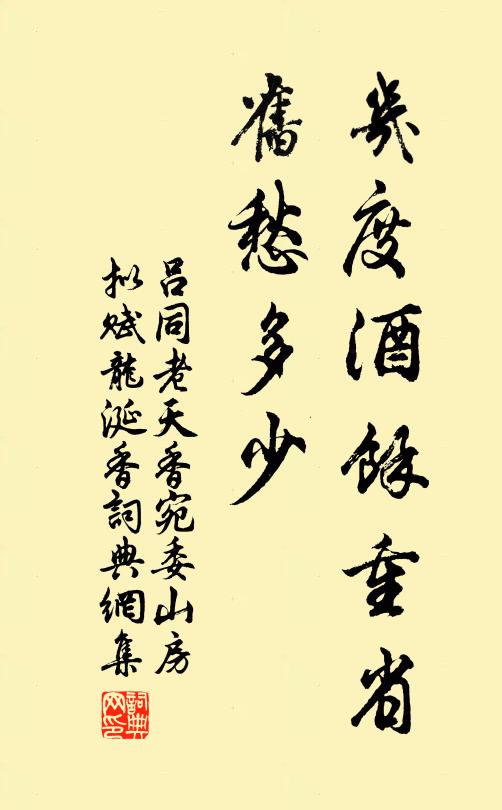 幾度酒餘重省
舊愁多少
呂同老天香宛委山房
拟賦龍涎香詞典網集
詞典網印